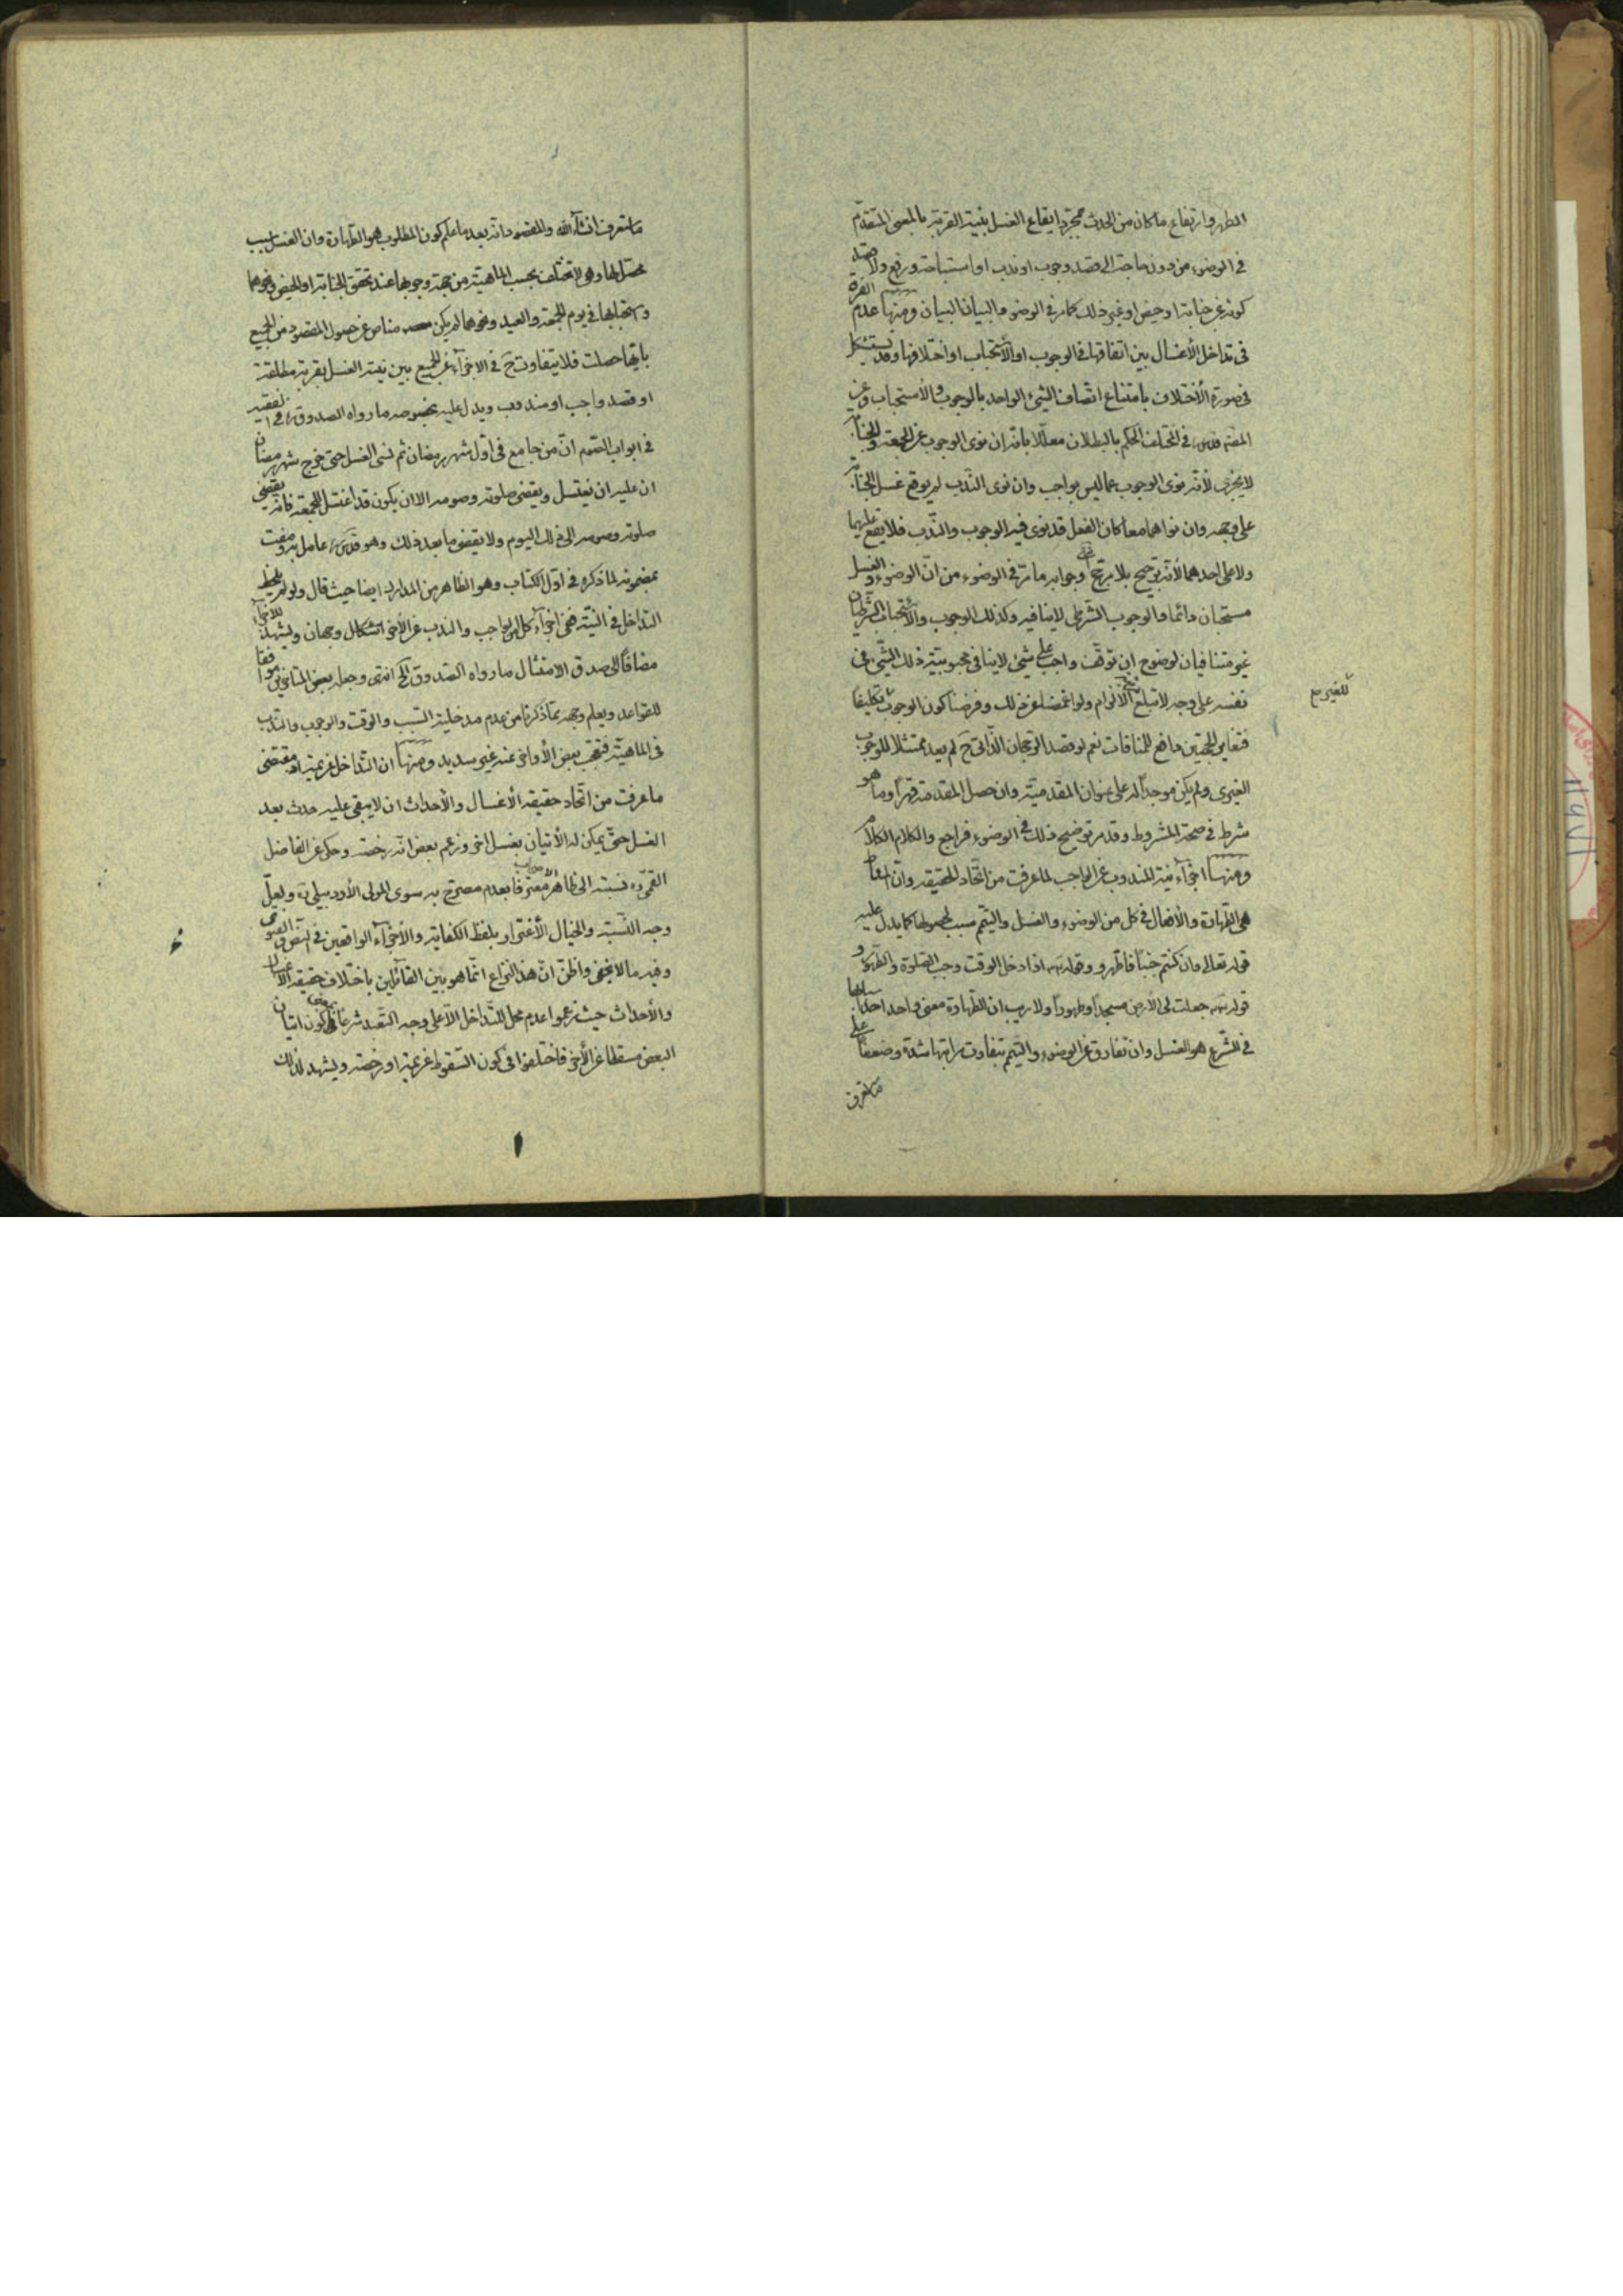 الطهر وارتفاع ما كان من الحدث بمجرد ايقاع الغسل بنية القربة بالمعنى المتقدم
في الوضوء من دون حاجة الى قصد وجوب او ندب او استباحة ورفع ولا قصد
كونه عن جنابة او حيض او غير ذلك كما مر في الوضوء والبيان البيان ومنها عدم الفرق
في تداخل الأغسال بين اتفاقها في الوجوب او الأستحباب او اختلافها وقد يستشكل
في صورة الأختلاف بامتناع اتصاف الشيء الواحد بالوجوب والأستحباب وعن
المصنف قدس في المختلف الحكم بالبطلان معللا بانه ان نوى الوجوب عن الجمعة والجنابة
لا يجزى لأنه نوى الوجوب عما ليس بواجب وان نوى الندب لم يوقع غسل الجنابة
على وجهه وان نواهما معا كان الفعل قد نوى فيه الوجوب والندب فلا يقع عليهما
ولا على احدهما لأنه ترجيح بلا مرجح وجوابه ما مر في الوضوء من ان الوضوء والغسل
مستحبان دائما والوجوب الشرطى لا ينافيه وكذلك الوجوب والأستحباب الشرطيان
غير متنافيان لوضوح ان توقف واجب على شيء لا ينافى محبوبية ذلك الشيء فى
نفسه على وجه لا تبلغ الألزام ولو اغمضنا عن ذلك وفرضنا كون الوجوب تكليفا
للغير مع
فتغاير الجهتين دافع للمنافات نعم لو قصد الرجحان الذاتى ح لم يعد ممتثلا للوجوب
الغيرى ولم يكن موجدا له على عنوان المقدمية وان حصل المقدمة قهرا وما هو
شرط في صحة المشروط وقد مر توضيح ذلك في الوضوء فراجع والكلام الكلام
ومنها اجزاء نية المندوب عن الواجب لما عرفت من اتحاد الحقيقة وان
هى الطهارة والأفعال في كل من الوضوء والغسل والتيمم سبب لحصولها كما يدل عليه
قوله تعالى وان كنتم جنبا فاطهروا وقوله ع اذا دخل الوقت وجب الصلوة والطهور و
قوله ص جعلت لى الأرض مسجدا وطهورا ولا ريب ان الطهارة معنى واحد احد اسبابها
في الشرع هو الغسل وان تفارق عن الوضوء والتيمم بتفاوت مراتبها شدة وضعفا على
ما ستعرف
ما ستعرف انشاء الله والمقصود انه بعد ما علم كون المطلوب هو الطهارة وان الغسل سبب
محصل لها وهى لا تختلف بحسب الماهية من جهة وجوبها عند تحقق الجنابة او الحيض ونحوهما
واستحبابها في يوم الجمعة والعيد ونحوهما لم يكن مناص عن حصول المقصود من الجميع
بايها حصلت فلا يتفاوت ح في الاجزاء عن الجميع بين نية الغسل بقربة مطلقة
او قصد واجب او مندوب ويدل عليه بخصوصه ما رواه الصدوق ره في الفقيه
في ابواب الصوم ان من جامع في اول شهر رمضان ثم نسى الغسل حتى خرج شهر رمضان
ان عليه ان يغتسل ويقضى صلوته وصومه الا ان يكون قد اغتسل للجمعة فانه يقضى
صلوته وصومه الى ذلك اليوم ولا يقضى ما بعد ذلك وهو قدس ره عامل به ومفت
بمضمونه لما ذكره في اول الكتاب وهو الظاهر من المدارك ايضا حيث قال ولو لم يلحظ
التداخل في النية ففى اجزاء كل الواجب والندب عن الأخر اشكال وجهان ويشهد للاجزاء
مضافا الى صدق الامتثال ما رواه الصدوق الخ انتهى وجعله بعض المتأخرين موافقا
للقواعد ويعلم وجهه مما ذكرنا من عدم مدخلية السبب والوقت والوجوب والندب
فى الماهية فتعجب بعض الأواخر عنه غير سديد ومنها ان التداخل عزيمة اذ مقتضى
ما عرفت من اتحاد حقيقة الأغسال والأحداث ان لا يبقى عليه حدث بعد
الغسل حتى يمكن له الأتيان بغسل اخر وزعم بعض انه رخصة وحكى عن الفاضل
القمى ره نسبته الى ظاهر الأصحاب معترفا بعدم مصرح به سوى المولى الأردبيلى ره ولعل
وجه النسبة والخيال الأغترار بلفظ الكفاية والأجزاء الواقعين في النص والفتوى
وفيه ما لا يخفى واظن ان هذا النزاع انما هو بين القائلين باختلاف حقيقة الأغسال
والأحداث حيث زعموا عدم محل للتداخل الا على وجه التعبد شرعا بمعنى كون اتيان
البعض مسقطا عن الأخر فاختلفوا فى كون السقوط عزيمة او رخصة ويشهد لذلك